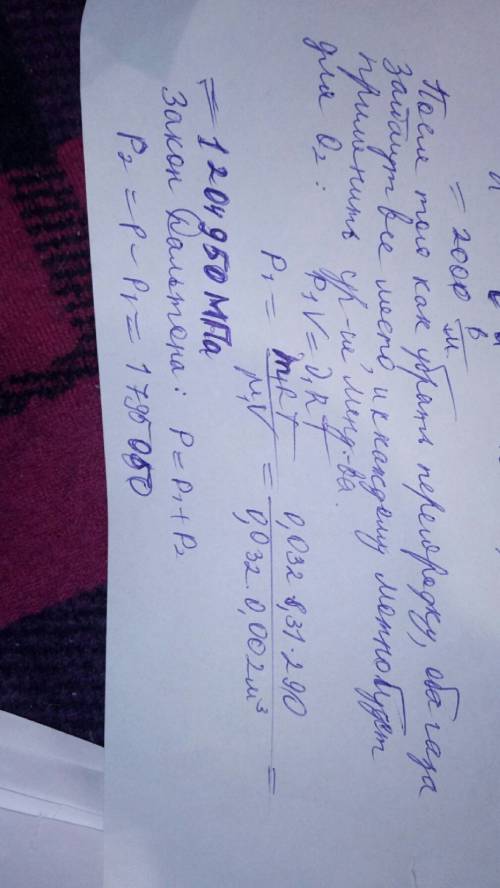 = 2000 В/м
После того как убрать перегородку, оба газа
займут все место и к каждому можно будет
применить ур-ие, менд-ва.
для O₂:
P₁V = ν₁RT
P₁ = m₁RT / μ₁V = 0,032 8,31·290 / 0,032·0,002м³ =
= 1204950 МПа
Закон Дальтона: P = P₁ + P₂
P₂ = P - P₁ = 1795050